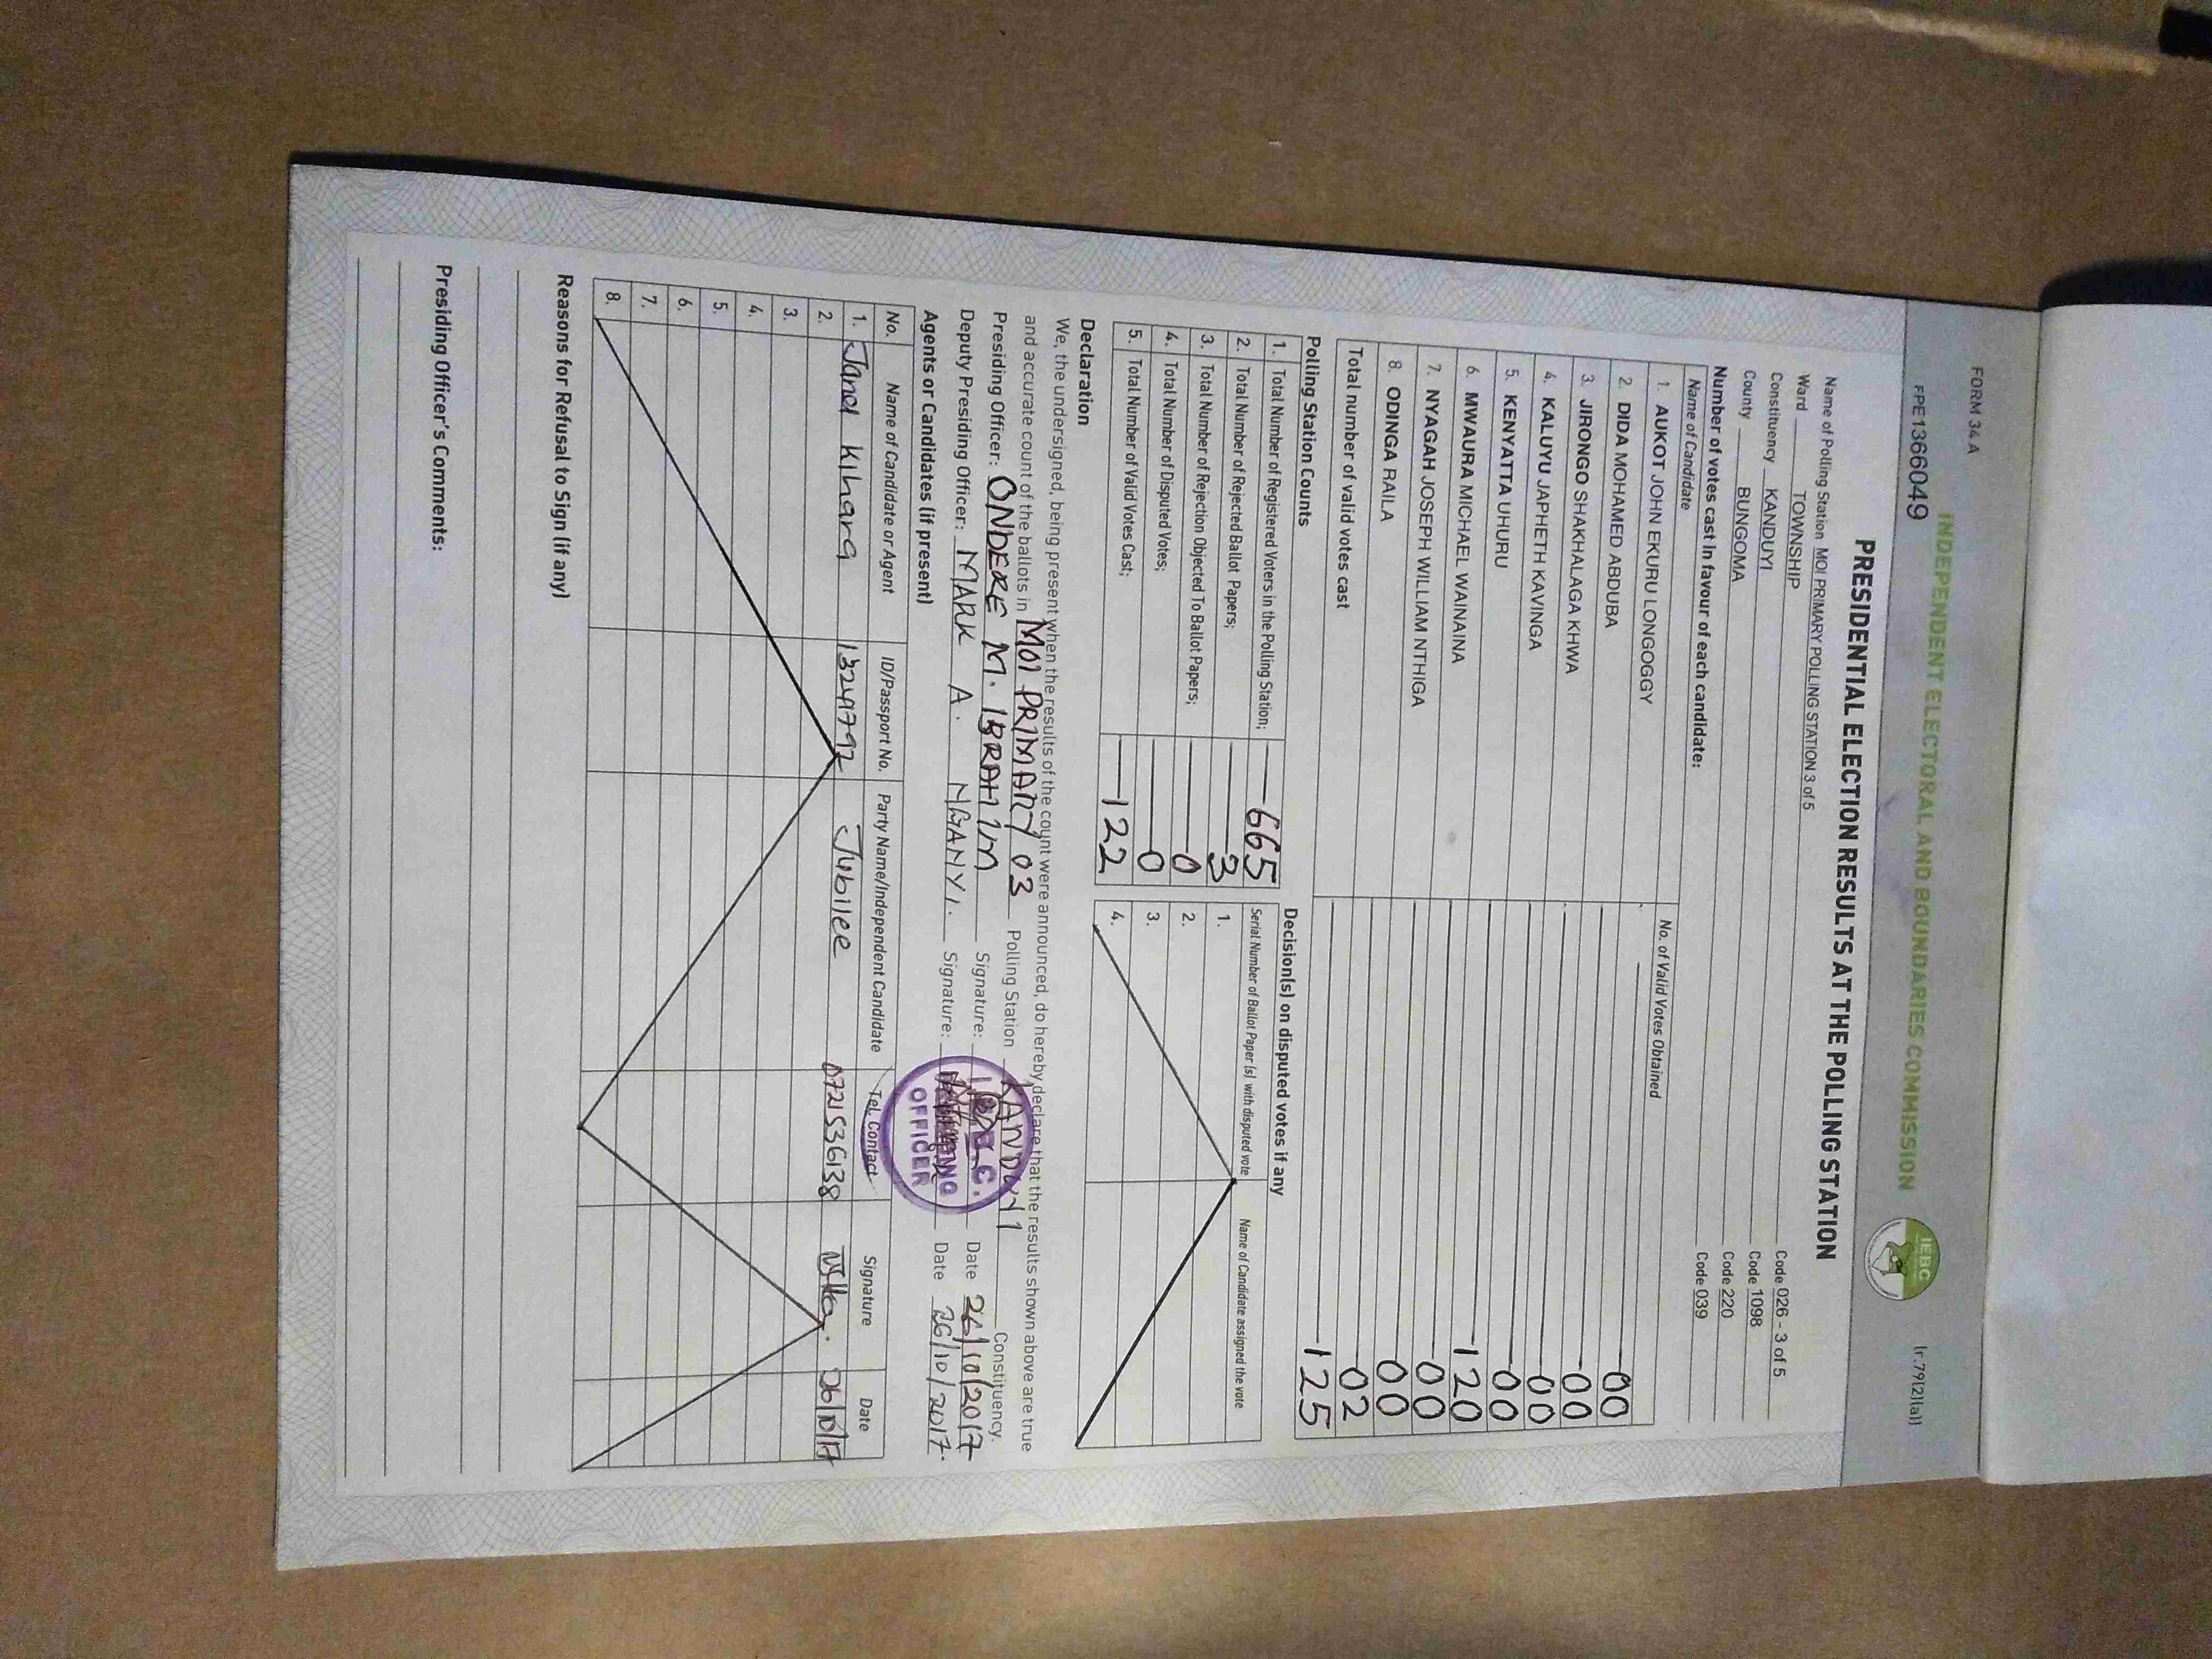 FORM 34 A
INDEPENDENT ELECTORAL AND BOUNDARIES COMMISSION
FPE1366049
IEBC
(r.79(2)(a))
PRESIDENTIAL ELECTION RESULTS AT THE POLLING STATION
Name of Polling Station MOI PRIMARY POLLING STATION 3 of 5 Code 026 - 3 of 5
Ward TOWNSHIP Code 1098
Constituency KANDUYI Code 220
County BUNGOMA Code 039
Number of votes cast in favour of each candidate:
Name of Candidate No. of Valid Votes Obtained
1. AUKOT JOHN EKURU LONGOGGY 00
2. DIDA MOHAMED ABDUBA 00
3. JIRONGO SHAKHALAGA KHWA 00
4. KALUYU JAPHETH KAVINGA 00
5. KENYATTA UHURU 120
6. MWAURA MICHAEL WAINAINA 00
7. NYAGAH JOSEPH WILLIAM NTHIGA 00
8. ODINGA RAILA 02
Total number of valid votes cast 125
Polling Station Counts
1. Total Number of Registered Voters in the Polling Station; 665
2. Total Number of Rejected Ballot Papers; 3
3. Total Number of Rejection Objected To Ballot Papers; 0
4. Total Number of Disputed Votes; 0
5. Total Number of Valid Votes Cast; 122
Decision(s) on disputed votes if any
Serial Number of Ballot Paper (s) with disputed vote Name of Candidate assigned the vote
1.
2.
3.
4.
Declaration
We, the undersigned, being present when the results of the count were announced, do hereby declare that the results shown above are true
and accurate count of the ballots in MOI PRIMARY 03 Polling Station KANDUYI Constituency.
Presiding Officer: ONDERE M. IBRAHIM Signature: Date 26/10/2017
Deputy Presiding Officer: MARK A. NGANYI. Signature: Date 26/10/2017.
OFFICER
Agents or Candidates (if present)
No. Name of Candidate or Agent ID/Passport No. Party Name/Independent Candidate Tel. Contact Signature Date
1. Janet Kihara 13249792 Jubilee 0721536138 26/10/17
2.
3.
4.
5.
6.
7.
8.
Reasons for Refusal to Sign (if any)
Presiding Officer's Comments: